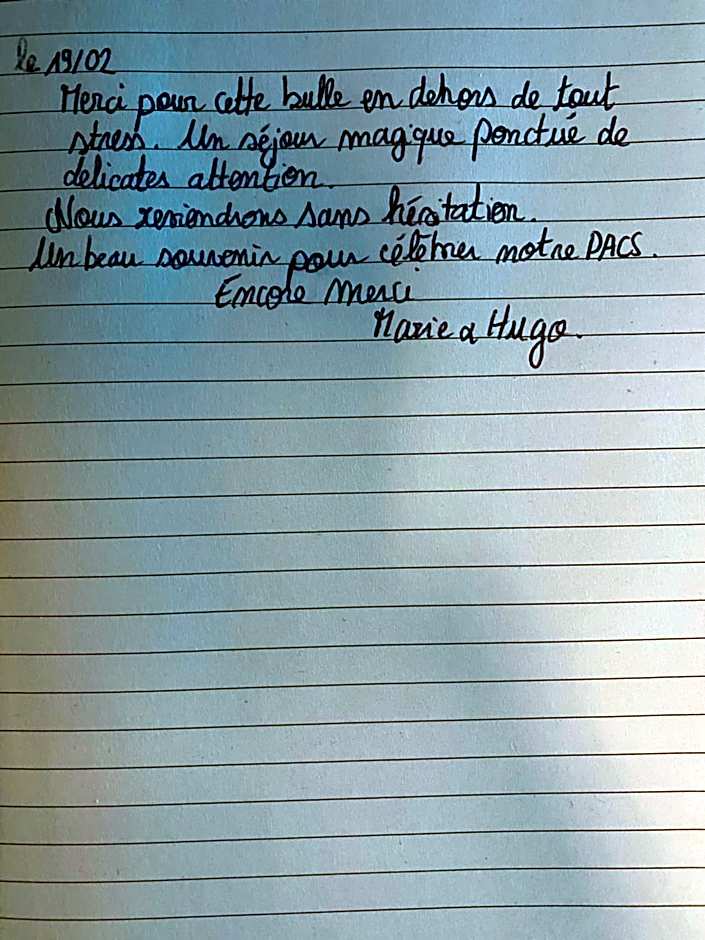 le 19/02
Merci pour cette bulle en dehors de tout
stress. Un séjour magique ponctué de
délicates attention.
Nous reviendrons sans hésitation.
Un beau souvenir pour célébrer notre PACS.
Encore merci
Marie & Hugo.